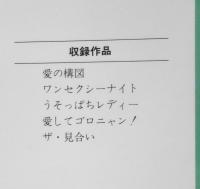 収録作品
愛の構図
ワンセクシーナイト
うそっぱちレディー
愛してゴロニャン！
ザ・見合い